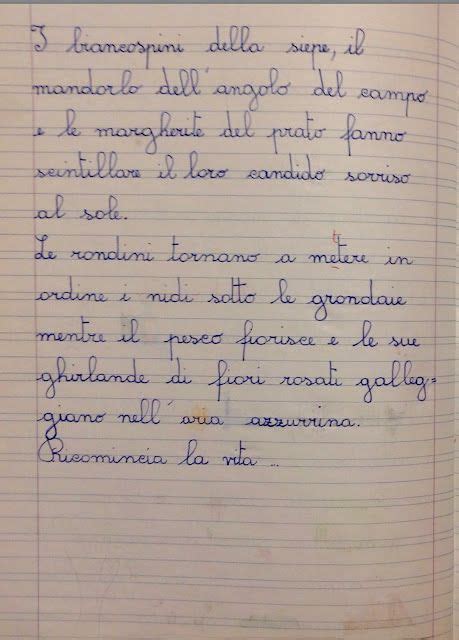 I biancospini della siepe, il
mandorlo dell'angolo del campo
e le margherite del prato fanno
scintillare il loro candido sorriso
al sole.
Le rondini tornano a metere in
ordine i nidi sotto le grondaie
mentre il pesco fiorisce e le sue
ghirlande di fiori rosati galleg=
giano nell'aria azzurrina.
Ricomincia la vita ...